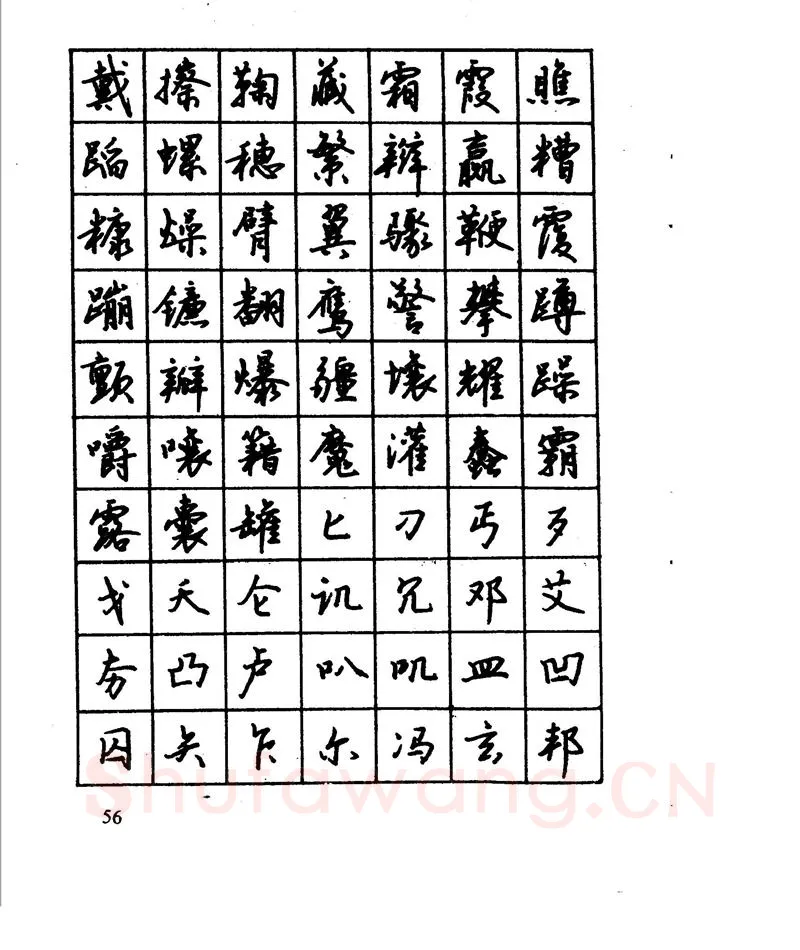 戴擦鞠藏霜霞瞧
蹈螺穗繁辫赢糟
糠燥臂翼骤鞭覆
蹦镰翻鹰警攀蹲
颤瓣爆疆壤耀躁
嚼嚷籍魔灌蠢霸
露囊罐匕刁丐歹
戈夭仑讥冗邓艾
夯凸卢叭叽皿凹
囚矢乍尔冯玄邦
Shufawang.CN
56